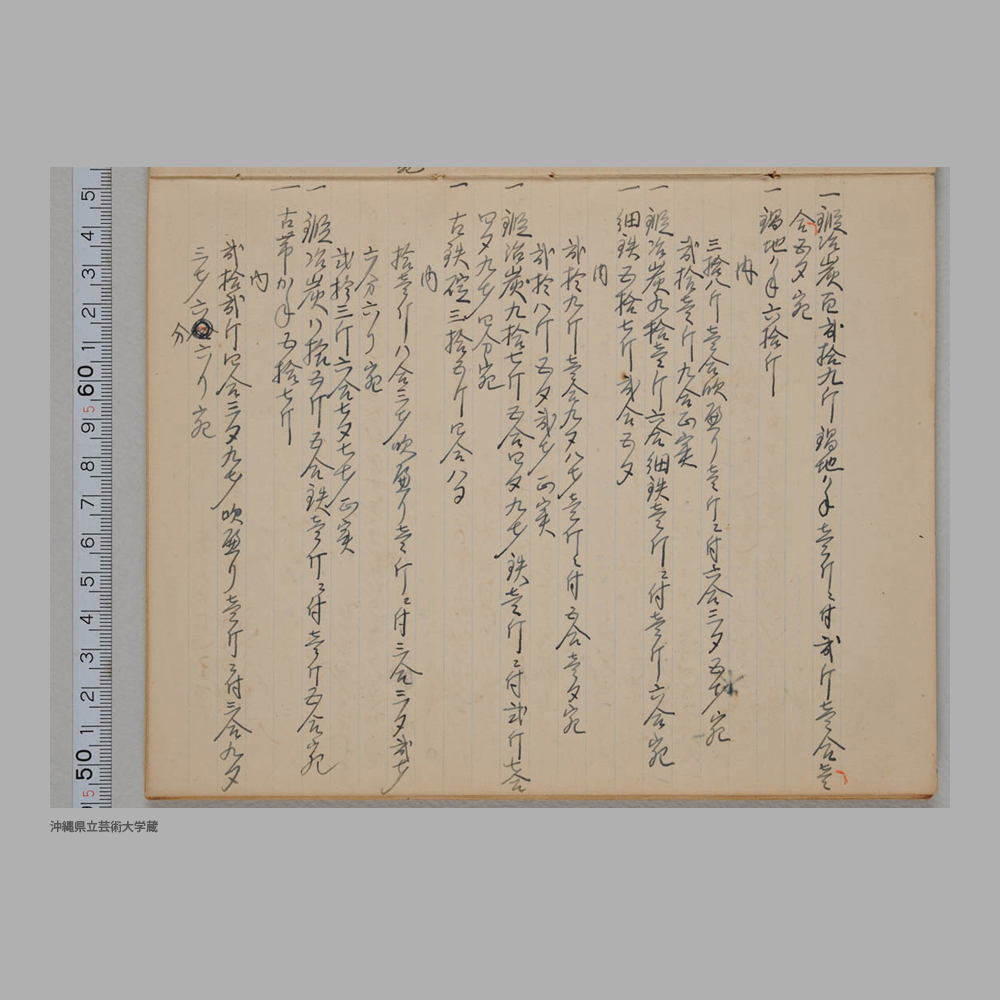 一鍛冶炭百弐拾九斤鍋地り手壱斤ニ付弐斤壱合壱
合五夕宛
一鍋地り手六拾斤
内
三拾八斤壱合吹減り壱斤ニ付六合三夕五才宛
弐拾壱斤九合正実
一鍛冶炭九拾壱斤六合細鉄壱斤ニ付壱斤六合宛
一細鉄五拾七斤弐合五夕
内
弐拾九斤壱合九夕八才壱斤ニ付五合壱夕宛
弐拾八斤五夕弐才正実
一鍛冶炭九拾七斤五合四夕九才鉄壱斤ニ付弐斤七合
四夕九才四分宛
一古鉄碇三拾五斤四合八夕
内
拾壱斤八合三才吹減り壱斤ニ付三合三夕弐才
六分六り宛
弐拾三斤六合七夕七才正実
一鍛冶炭八拾五斤五合鉄壱斤ニ付壱斤五合宛
一古帯かね五拾七斤
内
弐拾弐斤四合三夕九才吹減り壱斤ニ付三合九夕
三才六分六り宛
沖縄県立芸術大学蔵